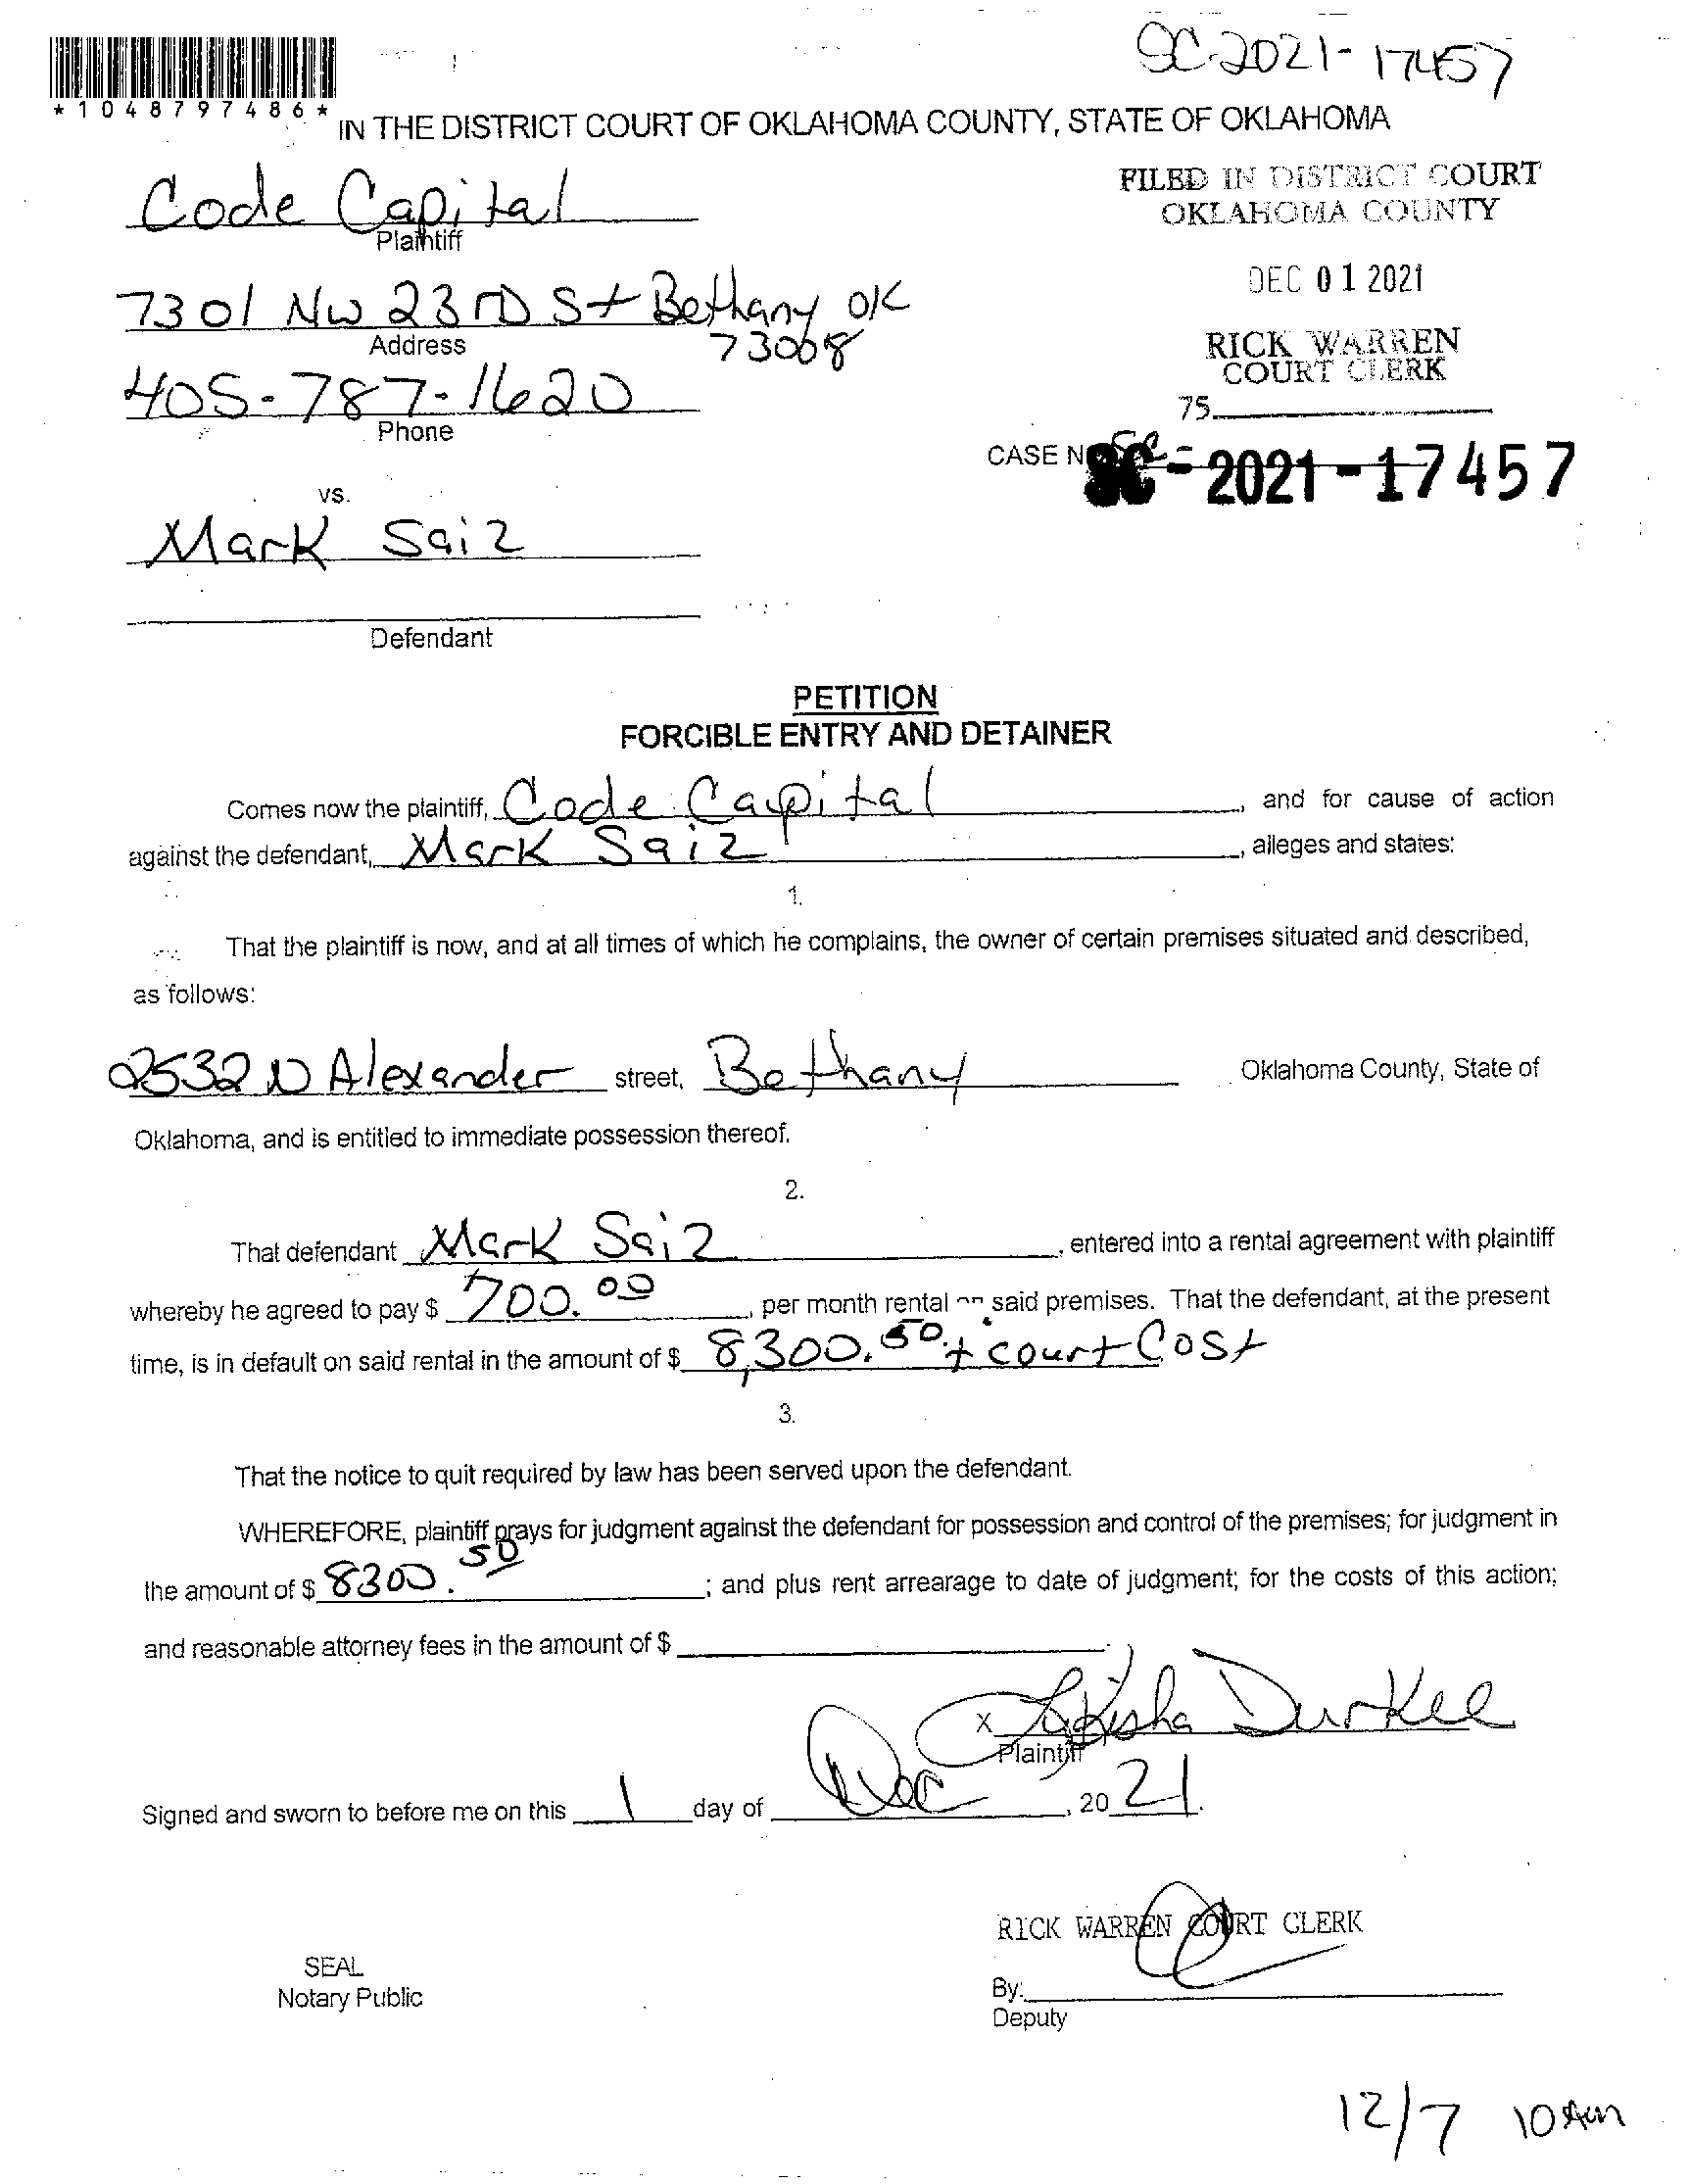 SC-2021-17457
*1048797486*
IN THE DISTRICT COURT OF OKLAHOMA COUNTY, STATE OF OKLAHOMA
Code Capital
Plaintiff
FILED IN DISTRICT COURT
OKLAHOMA COUNTY
DEC 01 2021
RICK WARREN
COURT CLERK
75
7301 NW 23RD St Bethany OK
Address
73008
405-787-1620
Phone
CASE N SC-2021-17457
vs.
Mark Saiz
Defendant
PETITION
FORCIBLE ENTRY AND DETAINER
Comes now the plaintiff, Code Capital, and for cause of action
against the defendant, Mark Saiz, alleges and states:
1.
That the plaintiff is now, and at all times of which he complains, the owner of certain premises situated and described,
as follows:
2532 N Alexander street, Bethany Oklahoma County, State of
Oklahoma, and is entitled to immediate possession thereof.
2.
That defendant Mark Saiz, entered into a rental agreement with plaintiff
whereby he agreed to pay $ 700.00, per month rental on said premises. That the defendant, at the present
time, is in default on said rental in the amount of $ 8,300.50 + court Cost
3.
That the notice to quit required by law has been served upon the defendant.
WHEREFORE, plaintiff prays for judgment against the defendant for possession and control of the premises; for judgment in
the amount of $ 8300.50; and plus rent arrearage to date of judgment; for the costs of this action;
and reasonable attorney fees in the amount of $
x LaKisha Durkee
Plaintiff
Signed and sworn to before me on this 1 day of Dec, 20 21.
RICK WARREN COURT CLERK
SEAL
Notary Public
By:
Deputy
12/7 10 Am